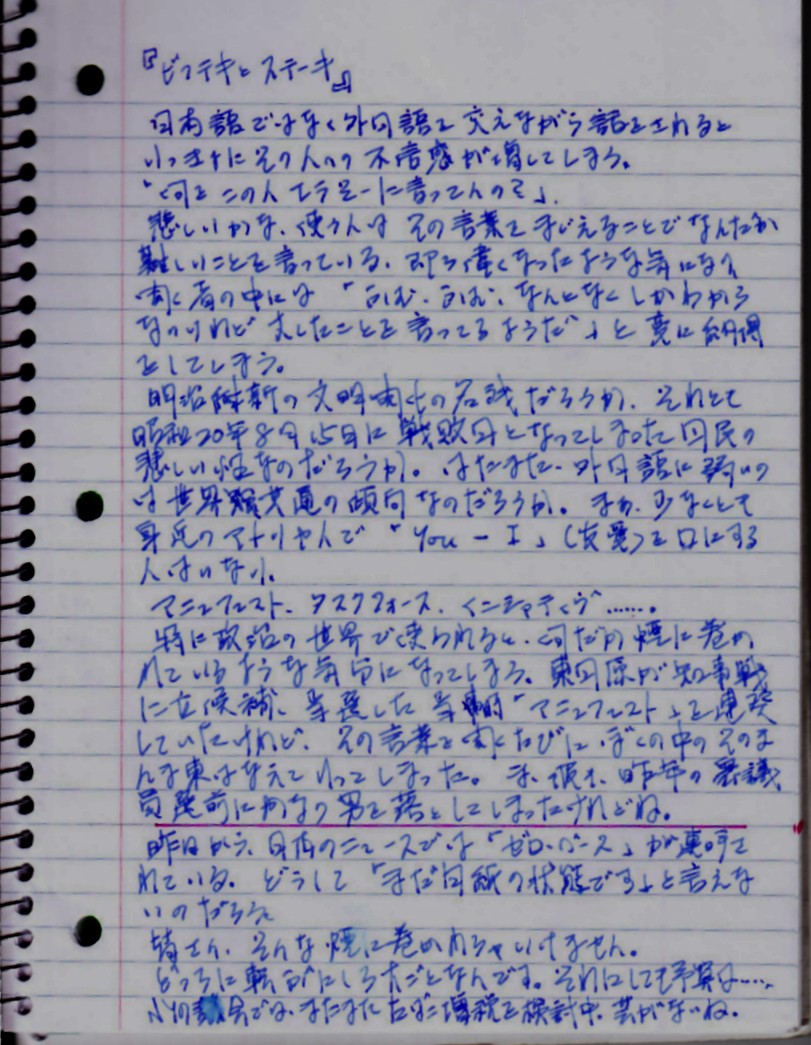 『ビフテキとステーキ』
日本語ではなく外国語を交えながら話をされると
いっきにその人への不信感が増してしまう。
「何をこの人エラそーに言ってんの?」。
悲しいかな、使う人はその言葉をまじえることでなんだか
難しいことを言っている、即ち偉くなったような気になり
聞く者の中には「うむ、うむ、なんとなくしかわから
ないけれど大したことを言ってるようだ」と妙に納得
をしてしまう。
明治維新の文明開化の名残だろうか、それとも
昭和20年8月15日に戦敗国となってしまった国民の
悲しい性なのだろうか。はたまた、外国語に弱いの
は世界共通の傾向なのだろうか。まぁ、少なくとも
身近のアメリカ人で「You – I」(友愛)を口にする
人はいない。
マニュフェスト、タスクフォース、イニシャティヴ……。
特に政治の世界で使われると、何だか煙に巻か
れているような気分になってしまう。東国原が知事戦
に立候補、当選した当時「マニュフェスト」を連発
していたけれど、その言葉を聞くたびに、ぼくの中のそのま
んま東はなえていってしまった。ま、彼は、昨年の衆議
員選前にかなり男を落としてしまったけれどね。
昨日から、日本のニュースでは「ゼロ・ベース」が連呼さ
れている。どうして「まだ白紙の状態です」と言えな
いのだろう。
皆さん、そんな煙に巻かれちゃいけません。
どっちに転ぶにしろ大ごとなんです。それにしても予算は……
NYの議会では、またまたたばこ増税を検討中、芸がないね。